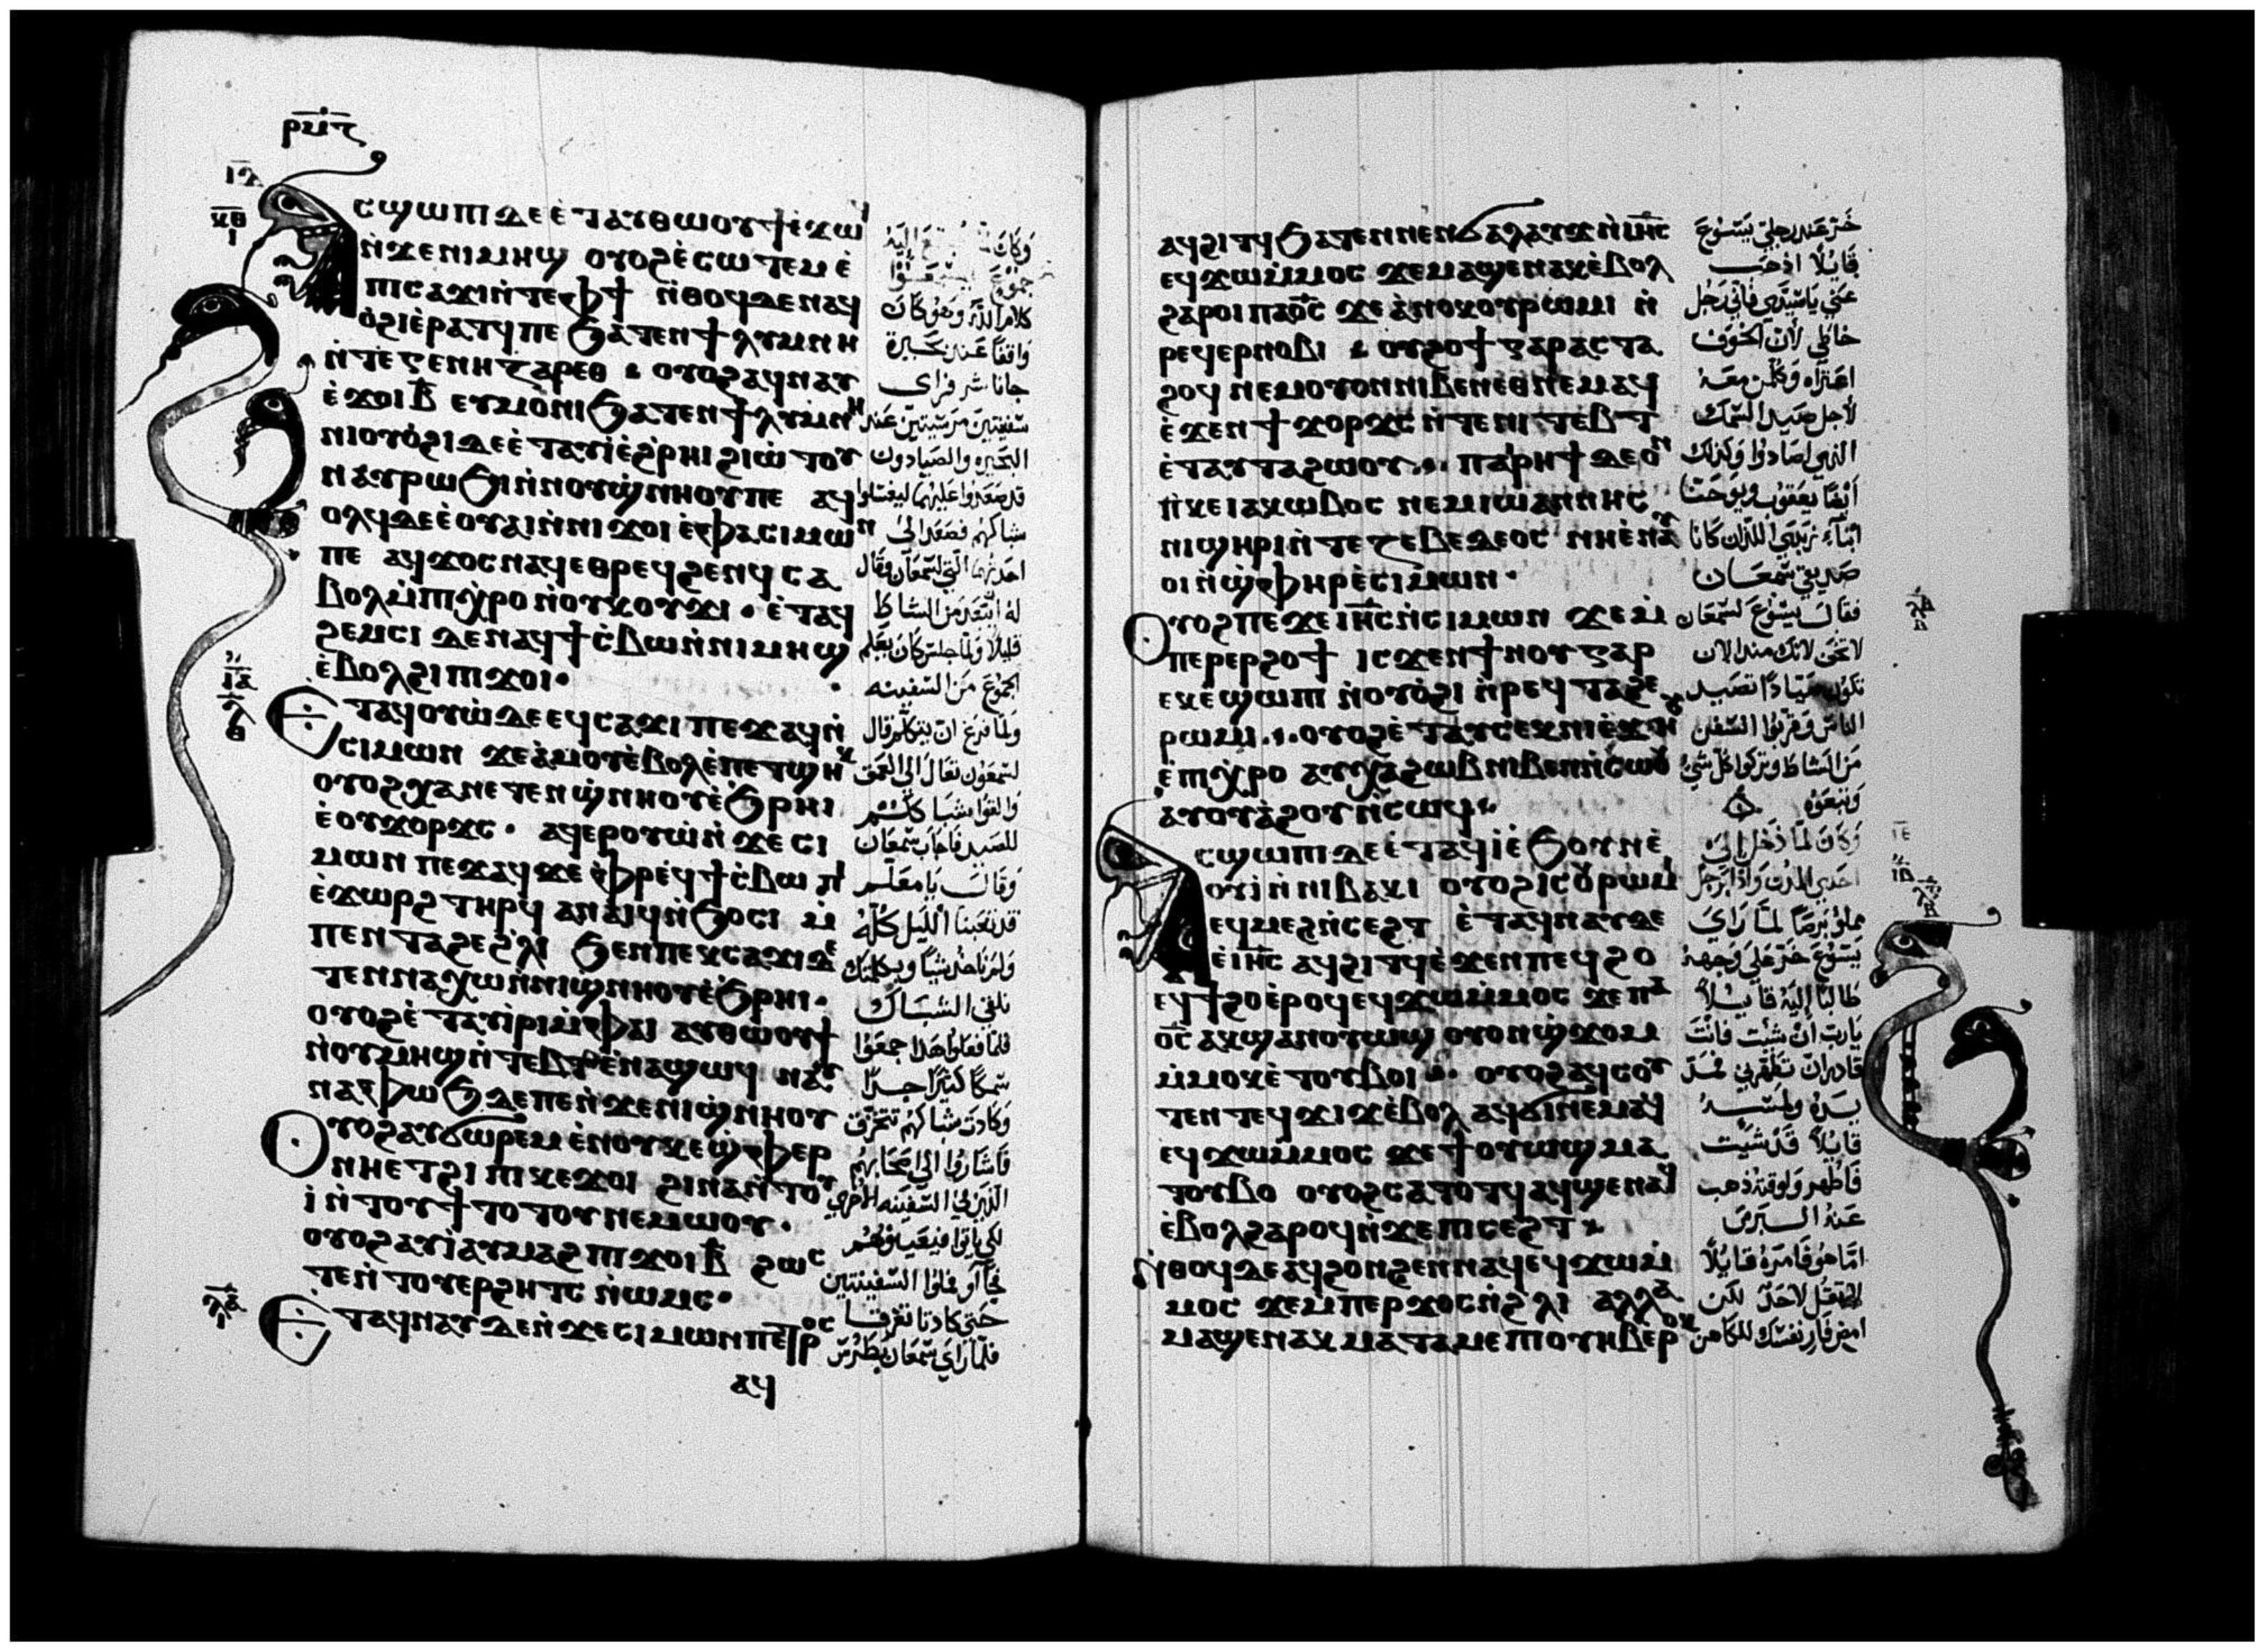 ⲣⲙ̅ⲋ
ⲥϣⲱⲡⲓ ⲇⲉ ⲉ̀ⲧⲁⲩⲑⲱⲟⲩϯ ⲉ̀ϫⲱϥ
ⲛ̀ϫⲉⲛⲓⲙⲏϣ ⲟⲩⲟϩ ⲉ̀ⲥⲱⲧⲉⲙ ⲉ̀
ⲡⲓⲥⲁϫⲓ ⲛ̀ⲧⲉⲫϯ ⲛ̀ⲑⲟϥ ⲇⲉ ⲛⲁϥ
ⲟ̀ϩⲓ ⲉ̀ⲣⲁⲧϥ ⲡⲉ ϧⲁⲧⲉⲛ ϯⲗⲩⲙⲛⲏ
ⲛ̀ⲧⲉ ⲅⲉⲛⲏⲍⲁⲣⲉⲑ ⲟⲩⲟϩ ⲁϥⲛⲁⲩ
ⲉ̀ϫⲟⲓ ⲃ̅ ⲉⲩⲙⲟ̀ⲛⲓ ϧⲁⲧⲉⲛ ϯⲗⲩⲙⲛⲏ
ⲛⲓⲟⲩⲟ̀ϩⲓ ⲇⲉ ⲉ̀ⲧⲁⲩⲓ̀ ⲉ̀ϩ̀ⲣⲏⲓ ϩⲓⲱ̀ⲧⲟⲩ
ⲛⲁⲩⲣⲱϧⲓ ⲛ̀ⲛⲟⲩϣ̀ⲛⲏⲟⲩ ⲡⲉ ⲁϥ
ⲟⲗϥ ⲇⲉ ⲉ̀ⲟⲩⲁⲓ ⲛ̀ⲛⲓϫⲟⲓ ⲉ̀ⲫⲁ ⲥⲓⲙⲱⲛ
ⲡⲉ ⲁϥϫⲟⲥ ⲛⲁϥ ⲉⲑⲣⲉϥϩⲉⲛϥ ⲥⲁ
ⲃⲟⲗ ⲙ̀ⲡⲓⲭⲣⲟ ⲛ̀ⲟⲩⲕⲟⲩϫⲓ · ⲉ̀ⲧⲁϥ
ϩⲉⲙⲥⲓ ⲇⲉ ⲛⲁϥϯⲥ̀ⲃⲱ ⲛ̀ⲛⲓⲙⲏϣ
ⲉ̀ⲃⲟⲗϩⲓ ⲡⲓϫⲟⲓ ·
ⲉⲧⲁϥⲟⲩⲱ̀ ⲇⲉ ⲉϥⲥⲁϫⲓ ⲡⲉϫⲁϥ ⲛ̀
ⲥⲓⲙⲱⲛ ϫⲉ ⲁ̀ⲙⲟⲩ ⲉ̀ⲃⲟⲗ ⲉ̀ⲡⲉⲧϣⲏⲕ
ⲟⲩⲟϩ ⲭⲁ ⲛⲉⲧⲉⲛϣ̀ⲛⲏⲟⲩ ⲉ̀ϧⲣⲏⲓ
ⲉ̀ⲟⲩϫⲟⲣϫⲥ · ⲁϥⲉⲣⲟⲩⲱ̀ ⲛ̀ϫⲉ ⲥⲓ
ⲙⲱⲛ ⲡⲉϫⲁϥ ϫⲉ ⲫⲣⲉϥϯⲥ̀ⲃⲱ ⲡⲓ
ⲉ̀ϫⲱⲣϩ ⲧⲏⲣϥ ⲁⲛϥⲓ ⲛ̀ϧⲓⲥⲓ ⲙ̀
ⲡⲉⲛⲧⲁϩⲉ ϩ̀ⲗⲓ ϧⲉⲛ ⲡⲉⲕⲥⲁϫⲓ ⲇⲉ
ⲧⲉⲛⲛⲁⲭⲱ ⲛ̀ⲛⲓϣ̀ⲛⲏⲟⲩ ⲉ̀ϧⲣⲏⲓ ·
ⲟⲩⲟϩ ⲉ̀ⲧⲁⲩⲓ̀ⲣⲓ ⲙ̀ⲫⲁⲓ ⲁⲩⲑⲱⲟⲩϯ
ⲛ̀ⲟⲩⲙⲏϣ ⲛ̀ⲧⲉⲃⲧ ⲉ̀ⲛⲁϣⲱϥ ⲛⲁⲩ
ⲛⲁⲫⲱϧ ⲇⲉ ⲡⲉ ⲛ̀ϫⲉⲛⲓϣ̀ⲛⲏⲟⲩ
ⲟⲩⲟϩ ⲁⲩϭⲱⲣⲉⲙ ⲉ̀ⲛⲟⲩⲕⲉϣ̀ⲫⲉⲣ
ⲛⲏ ⲉⲧϩⲓ ⲡⲓⲕⲉϫⲟⲓ ϩⲓⲛⲁ ⲛ̀ⲧⲟⲩ
ⲓ̀ ⲛ̀ⲧⲟⲩϯⲧⲟⲧⲟⲩ ⲛⲉⲙⲱⲟⲩ ·
ⲟⲩⲟϩ ⲁⲩⲓ̀ ⲁⲩⲙⲁϩ ⲡⲓϫⲟⲓ ⲃ̅ ϩⲱⲥ
ⲧⲉ ⲛ̀ⲧⲟⲩⲉⲣϩⲏⲧⲥ ⲛ̀ⲱⲙⲥ ·
ⲉⲧⲁϥⲛⲁⲩ ⲇⲉ ⲛ̀ϫⲉ ⲥⲓⲙⲱⲛ ⲡⲉⲧⲣⲟⲥ
ⲁϥ
كلام الله وهو كان
واقفًا عند بحيرة
جاناشر فراى
سفينتين مرسيتين عند
البحيره والصيادون
قد صعدوا عليهما ليغسلوا
شباكهم فصعد الى
احدهما التى لسمعان وقال
له ابتعد من الشاطئ
قليلًا ولما جلس كان يعلم
الجموع من السفينه
ولما فرغ ان يتكلم قال
لسمعون تعال الى العمق
والقوا شباككم
للصيد فاجاب سمعان
وقال يا معلم
قد تعبنا الليل كله
ولم ناخذ شيئًا وبكلمتك
نلقى الشباك
فلما فعلوا هذا جمعوا
سمكًا كثيرًا جدًا
وكادت شباكهم تتخرق
فاشاروا الى اصحابهم
الذين فى السفينه الاخرى
لكى ياتوا فيعينوهم
فجاوا وملوا السفينتين
حتى كادتا تغرقا
فلما راى سمعان بطرس
ⲁϥϩⲓⲧϥ ϧⲁⲧⲉⲛ ⲛⲉⲛϭⲁⲗⲁⲩϫ ⲛ̀ⲓⲏ̅ⲥ
ⲉϥϫⲱ ⲙ̀ⲙⲟⲥ ϫⲉ ⲙⲁϣⲉⲛⲁⲕ ⲉ̀ⲃⲟⲗ
ϩⲁⲣⲟⲓ ⲡⲁⲟ̅ⲥ ϫⲉ ⲁ̀ⲛⲟⲕ ⲟⲩⲣⲱⲙⲓ ⲛ̀
ⲣⲉϥⲉⲣⲛⲟⲃⲓ ⲟⲩϩⲟϯ ⲅⲁⲣ ⲁⲥⲧⲁ
ϩⲟϥ ⲛⲉⲙ ⲟⲩⲟⲛ ⲛⲓⲃⲉⲛ ⲉⲑⲛⲉⲙⲁϥ
ⲉ̀ϫⲉⲛ ϯϫⲟⲣϫⲥ ⲛ̀ⲧⲉ ⲛⲓⲧⲉⲃⲧ
ⲉ̀ⲧⲁⲩⲧⲁϩⲱⲟⲩ · ⲡⲁⲣⲏϯ ⲇⲉ ⲟⲛ
ⲛ̀ⲕⲉⲓⲁⲕⲱⲃⲟⲥ ⲛⲉⲙ ⲓⲱⲁⲛⲛⲏⲥ
ⲛⲓϣⲏⲣⲓ ⲛ̀ⲧⲉ ⲍⲉⲃⲉⲇⲉⲟⲥ ⲛⲏ ⲉ̀ⲛⲁⲩ
ⲟⲓ ⲛ̀ϣ̀ⲫⲏⲣ ⲉ̀ⲥⲓⲙⲱⲛ ·
ⲟⲩⲟϩ ⲡⲉϫⲉ ⲓⲏ̅ⲥ ⲛ̀ⲥⲓⲙⲱⲛ ϫⲉ ⲙ̀
ⲡⲉⲣⲉⲣϩⲟϯ ⲓⲥϫⲉⲛ ϯⲛⲟⲩ ⲅⲁⲣ
ⲉⲕⲉ̀ϣⲱⲡⲓ ⲛ̀ⲟⲩⲟ̀ϩⲓ ⲛ̀ⲣⲉϥⲧⲁϩⲉ
ⲣⲱⲙⲓ · ⲟⲩⲟϩ ⲉ̀ⲧⲁⲩⲥⲉⲕ ⲛⲓⲉ̀ϫⲏⲟⲩ
ⲉ̀ⲡⲓⲭⲣⲟ ⲁⲩⲭⲁ ϩⲱⲃ ⲛⲓⲃⲉⲛ ⲛ̀ⲥⲱⲟⲩ
ⲁⲩⲟⲩⲁ̀ϩⲟⲩ ⲛ̀ⲥⲱϥ ·
ⲥϣⲱⲡⲓ ⲇⲉ ⲉ̀ⲧⲁϥⲓ̀ ⲉ̀ϧⲟⲩⲛ ⲉ̀
ⲟⲩⲓ̀ ⲛ̀ⲛⲓⲃⲁⲕⲓ ⲟⲩⲟϩ ⲓⲥ ⲟⲩⲣⲱⲙⲓ
ⲉϥⲙⲉϩ ⲛ̀ⲥⲉϩⲧ ⲉ̀ⲧⲁϥⲛⲁⲩ ⲇⲉ
ⲉ̀ⲓⲏ̅ⲥ ⲁϥϩⲓⲧϥ ⲉ̀ϫⲉⲛ ⲡⲉϥϩⲟ
ⲉϥϯϩⲟ ⲉ̀ⲣⲟϥ ⲉϥϫⲱ ⲙ̀ⲙⲟⲥ ϫⲉ ⲡⲁ
ⲟ̅ⲥ ⲁⲕϣⲁⲛⲟⲩⲱϣ ⲟⲩⲟⲛϣ̀ϫⲟⲙ
ⲙ̀ⲙⲟⲕ ⲉ̀ⲧⲟⲩⲃⲟⲓ · ⲟⲩⲟϩ ⲁϥⲥⲟⲩ
ⲧⲉⲛ ⲧⲉϥϫⲓϫ ⲉ̀ⲃⲟⲗ ⲁϥϭⲓ ⲛⲉⲙⲁϥ
ⲉϥϫⲱ ⲙ̀ⲙⲟⲥ ϫⲉ ϯⲟⲩⲱϣ ⲙⲁ
ⲧⲟⲩⲃⲟ ⲟⲩⲟϩ ⲥⲁⲧⲟⲧϥ ⲁϥϣⲉⲛⲁϥ
ⲉ̀ⲃⲟⲗϩⲁⲣⲟϥ ⲛ̀ϫⲉ ⲡⲓⲥⲉϩⲧ
ⲛ̀ⲑⲟϥ ⲇⲉ ⲁϥϩⲟⲛϩⲉⲛ ⲛⲁϥ ⲉϥϫⲱ ⲙ̀
ⲙⲟⲥ ϫⲉ ⲙⲡⲉⲣϫⲟⲥ ⲛ̀ϩ̀ⲗⲓ ⲁⲗⲗⲁ
ⲙⲁϣⲉⲛⲁⲕ ⲙⲁⲧⲁⲙⲉ ⲡⲓⲟⲩⲏⲃ ⲉⲣⲟⲕ
خر عند رجلى يسوع
قايلًا اذهب
عنى يا سيدى فانى رجل
خاطى لان الخوف
اعتراه وكلمن معه
لاجل صيد السمك
الذى اصادوا وكذلك
ايضًا يعقوب ويوحنا
ابناء زبدى اللذان كانا
صديقى سمعان
فقال يسوع لسمعان
لا تخف لانك منذ الان
تكون صيادًا تصيد
الناس وقربوا السفن
من الشاطئ وتركوا كل شى
وتبعوه
وكان لما دخل الى
احدى المدن واذا برجل
مملو برصًا لما راى
يسوع خر على وجهه
طالبًا اليه قايلًا
يارب ان شيت فانت
قادر ان تطهرنى فمد
يده ولمسه
قايلًا قد شيت
فاطهر ولوقته ذهب
عنه البرص
اما هو فامره قايلًا
لا تقل لاحد لكن
امض فار نفسك للكاهن